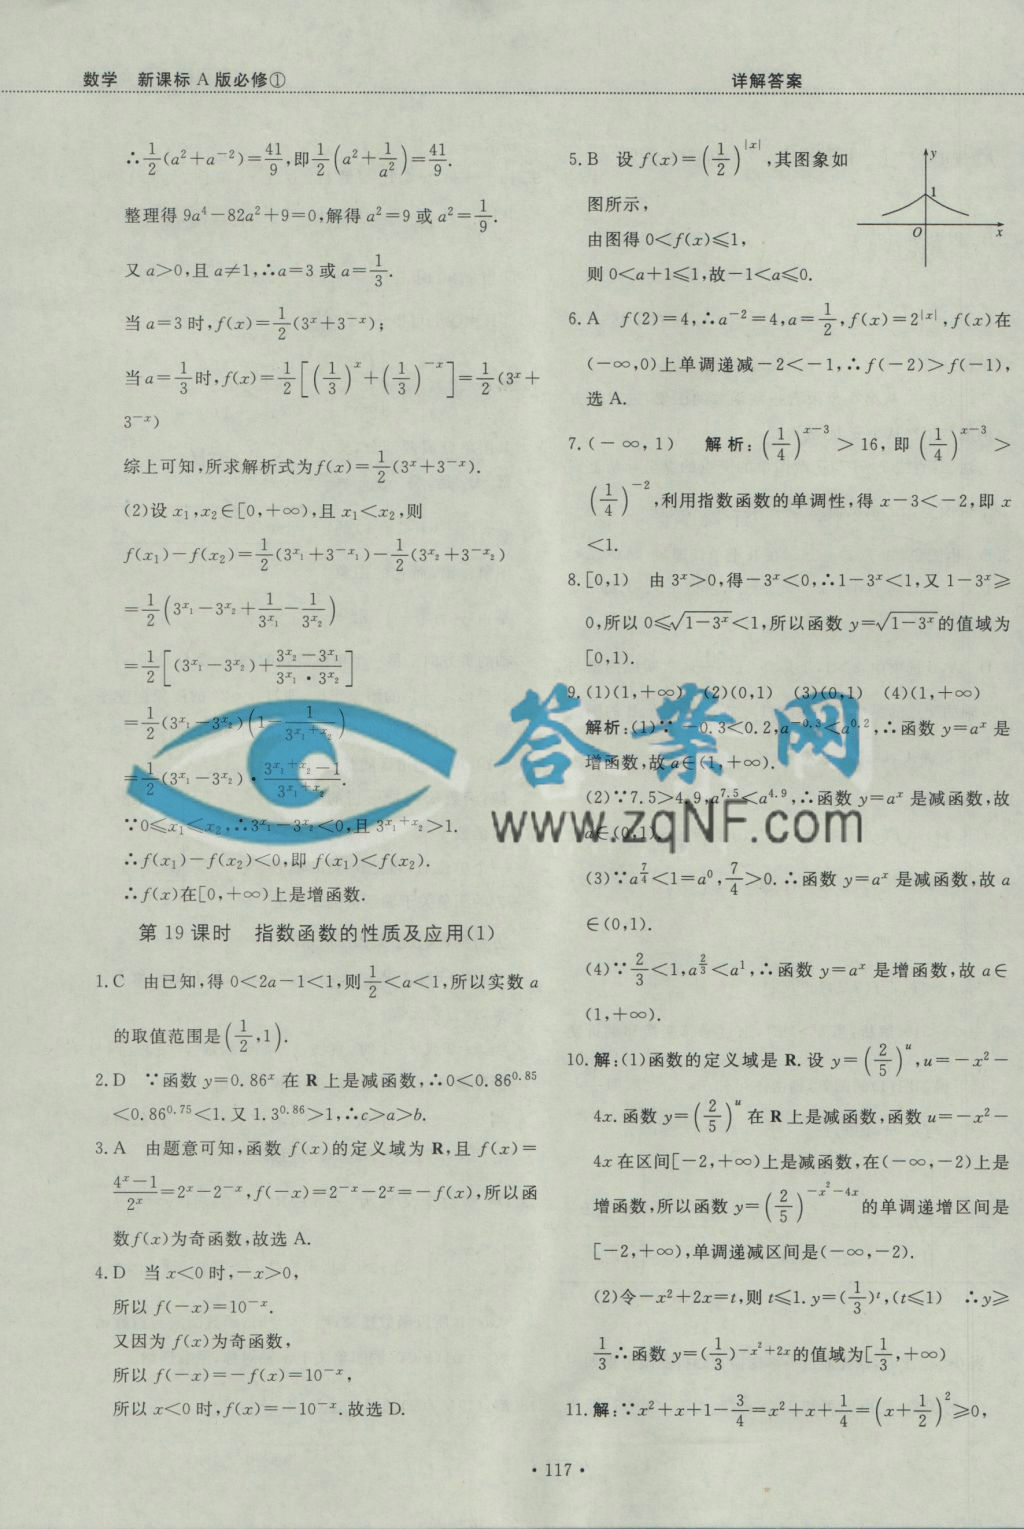 数学 新课标 A 版必修①
详解答案
∴1/2(a²+a⁻²)=41/9,即1/2(a²+1/a²)=41/9.
整理得 9a⁴-82a²+9=0,解得 a²=9 或 a²=1/9.
又 a>0,且 a≠1,∴a=3 或 a=1/3.
当 a=3 时,f(x)=1/2(3ˣ+3⁻ˣ);
当 a=1/3时,f(x)=1/2[(1/3)ˣ+(1/3)⁻ˣ]=1/2(3ˣ+
3⁻ˣ)
综上可知,所求解析式为f(x)=1/2(3ˣ+3⁻ˣ).
(2)设 x₁,x₂∈[0,+∞),且 x₁<x₂,则
f(x₁)-f(x₂)=1/2(3^x₁+3^-x₁)-1/2(3^x₂+3^-x₂)
=1/2(3^x₁-3^x₂+1/3^x₁-1/3^x₂)
=1/2[(3^x₁-3^x₂)+(3^x₂-3^x₁)/(3^x₁·3^x₂)]
=1/2(3^x₁-3^x₂)(1-1/3^(x₁+x₂))
=1/2(3^x₁-3^x₂)·(3^(x₁+x₂)-1)/3^(x₁+x₂).
∵0≤x₁≤x₂,∴3^x₁-3^x₂<0,且 3^(x₁+x₂)>1.
∴f(x₁)-f(x₂)<0,即 f(x₁)<f(x₂).
∴f(x)在[0,+∞)上是增函数.
第 19 课时 指数函数的性质及应用(1)
1.C 由已知,得 0<2a-1<1,则1/2<a<1,所以实数 a
的取值范围是(1/2,1).
2.D ∵函数 y=0.86ˣ 在 R 上是减函数,∴0<0.86^0.85
<0.86^0.75<1.又 1.3^0.86>1,∴c>a>b.
3.A 由题意可知,函数 f(x)的定义域为 R,且 f(x)=
(4ˣ-1)/2ˣ=2ˣ-2⁻ˣ,f(-x)=2⁻ˣ-2ˣ=-f(x),所以函
数f(x)为奇函数,故选 A.
4.D 当 x<0 时,-x>0,
所以 f(-x)=10⁻ˣ.
又因为 f(x)为奇函数,
所以 f(-x)=-f(x)=10⁻ˣ,
所以 x<0 时,f(x)=-10⁻ˣ.故选 D.
5.B 设 f(x)=(1/2)^|x|,其图象如
图所示,
由图得 0<f(x)≤1,
则 0<a+1≤1,故-1<a≤0.
y
1
O
x
6.A f(2)=4,∴a⁻²=4,a=1/2,f(x)=2^|x|,f(x)在
(-∞,0)上单调递减-2<-1,∴f(-2)>f(-1),
选 A.
7.(-∞,1) 解析:(1/4)^(x-3)>16,即(1/4)^(x-3)>
(1/4)⁻²,利用指数函数的单调性,得 x-3<-2,即 x
<1.
8.[0,1) 由 3ˣ>0,得-3ˣ<0,∴1-3ˣ<1,又 1-3ˣ≥
0,所以 0≤√(1-3ˣ)<1,所以函数 y=√(1-3ˣ)的值域为
[0,1).
9.(1)(1,+∞) (2)(0,1) (3)(0,1) (4)(1,+∞)
解析:(1)∵-0.3<0.2,a^-0.3<a^0.2,∴函数 y=aˣ 是
增函数,故 a∈(1,+∞).
(2)∵7.5>4.9,a^7.5<a^4.9,∴函数 y=aˣ 是减函数,故
a∈(0,1).
(3)∵a^(7/4)<1=a⁰,7/4>0.∴函数 y=aˣ 是减函数,故 a
∈(0,1).
(4)∵2/3<1,a^(2/3)<a¹,∴函数 y=aˣ 是增函数,故 a∈
(1,+∞).
10.解:(1)函数的定义域是 R.设 y=(2/5)^u,u=-x²-
4x.函数 y=(2/5)^u 在 R 上是减函数,函数 u=-x²-
4x 在区间[-2,+∞)上是减函数,在(-∞,-2)上是
增函数,所以函数 y=(2/5)^(-x²-4x)的单调递增区间是
[-2,+∞),单调递减区间是(-∞,-2).
(2)令-x²+2x=t,则 t≤1.y=(1/3)^t,(t≤1) ∴y≥
1/3∴函数 y=(1/3)^(-x²+2x)的值域为[1/3,+∞)
11.解:∵x²+x+1-3/4=x²+x+1/4=(x+1/2)²≥0,
·117·
答案网
www.zqNF.com